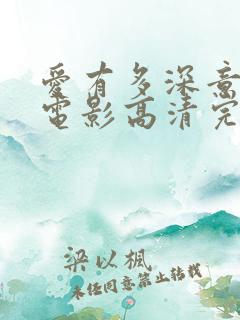 愛有多深意
電影高清完
梁以楓
未经同意禁止转载